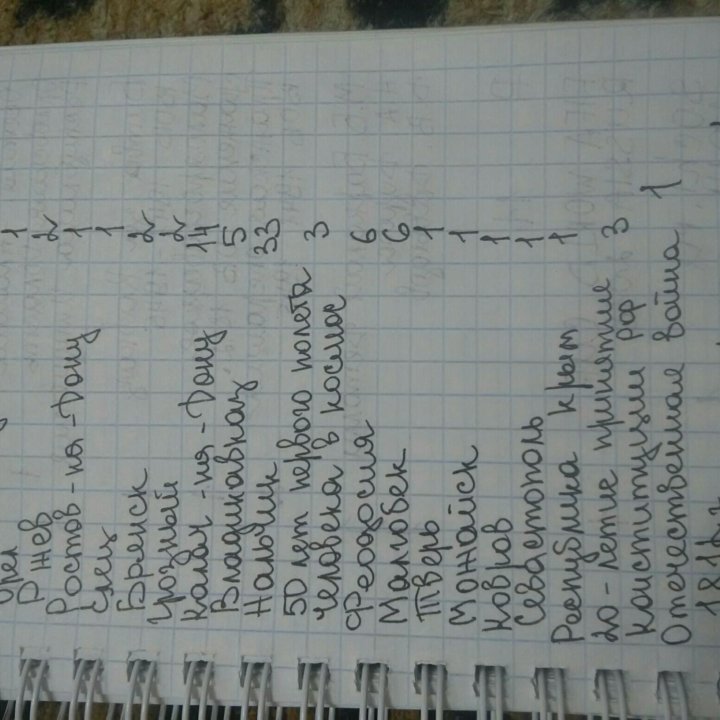 Орел 1
Ржев 2
Ростов-на-Дону 1
Елец 1
Брянск 2
Грозный 2
Калач-на-Дону 14
Владикавказ 5
Нальчик 33
50 лет первого полета 3
человека в космос
Феодосия 6
Малгобек 6
Тверь 1
Можайск 1
Ковров 1
Севастополь 1
Республика Крым 1
20-летие принятие 3
Конституции РФ
Отечественная война 1